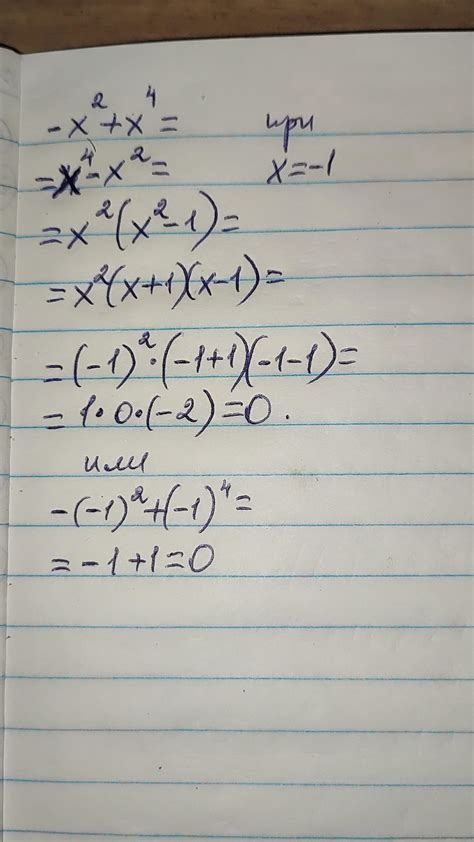 -x²+x⁴= при
=x⁴-x²= x=-1
=x²(x²-1)=
=x²(x+1)(x-1)=
=(-1)²·(-1+1)(-1-1)=
=1·0·(-2)=0.
или
-(-1)²+(-1)⁴=
=-1+1=0